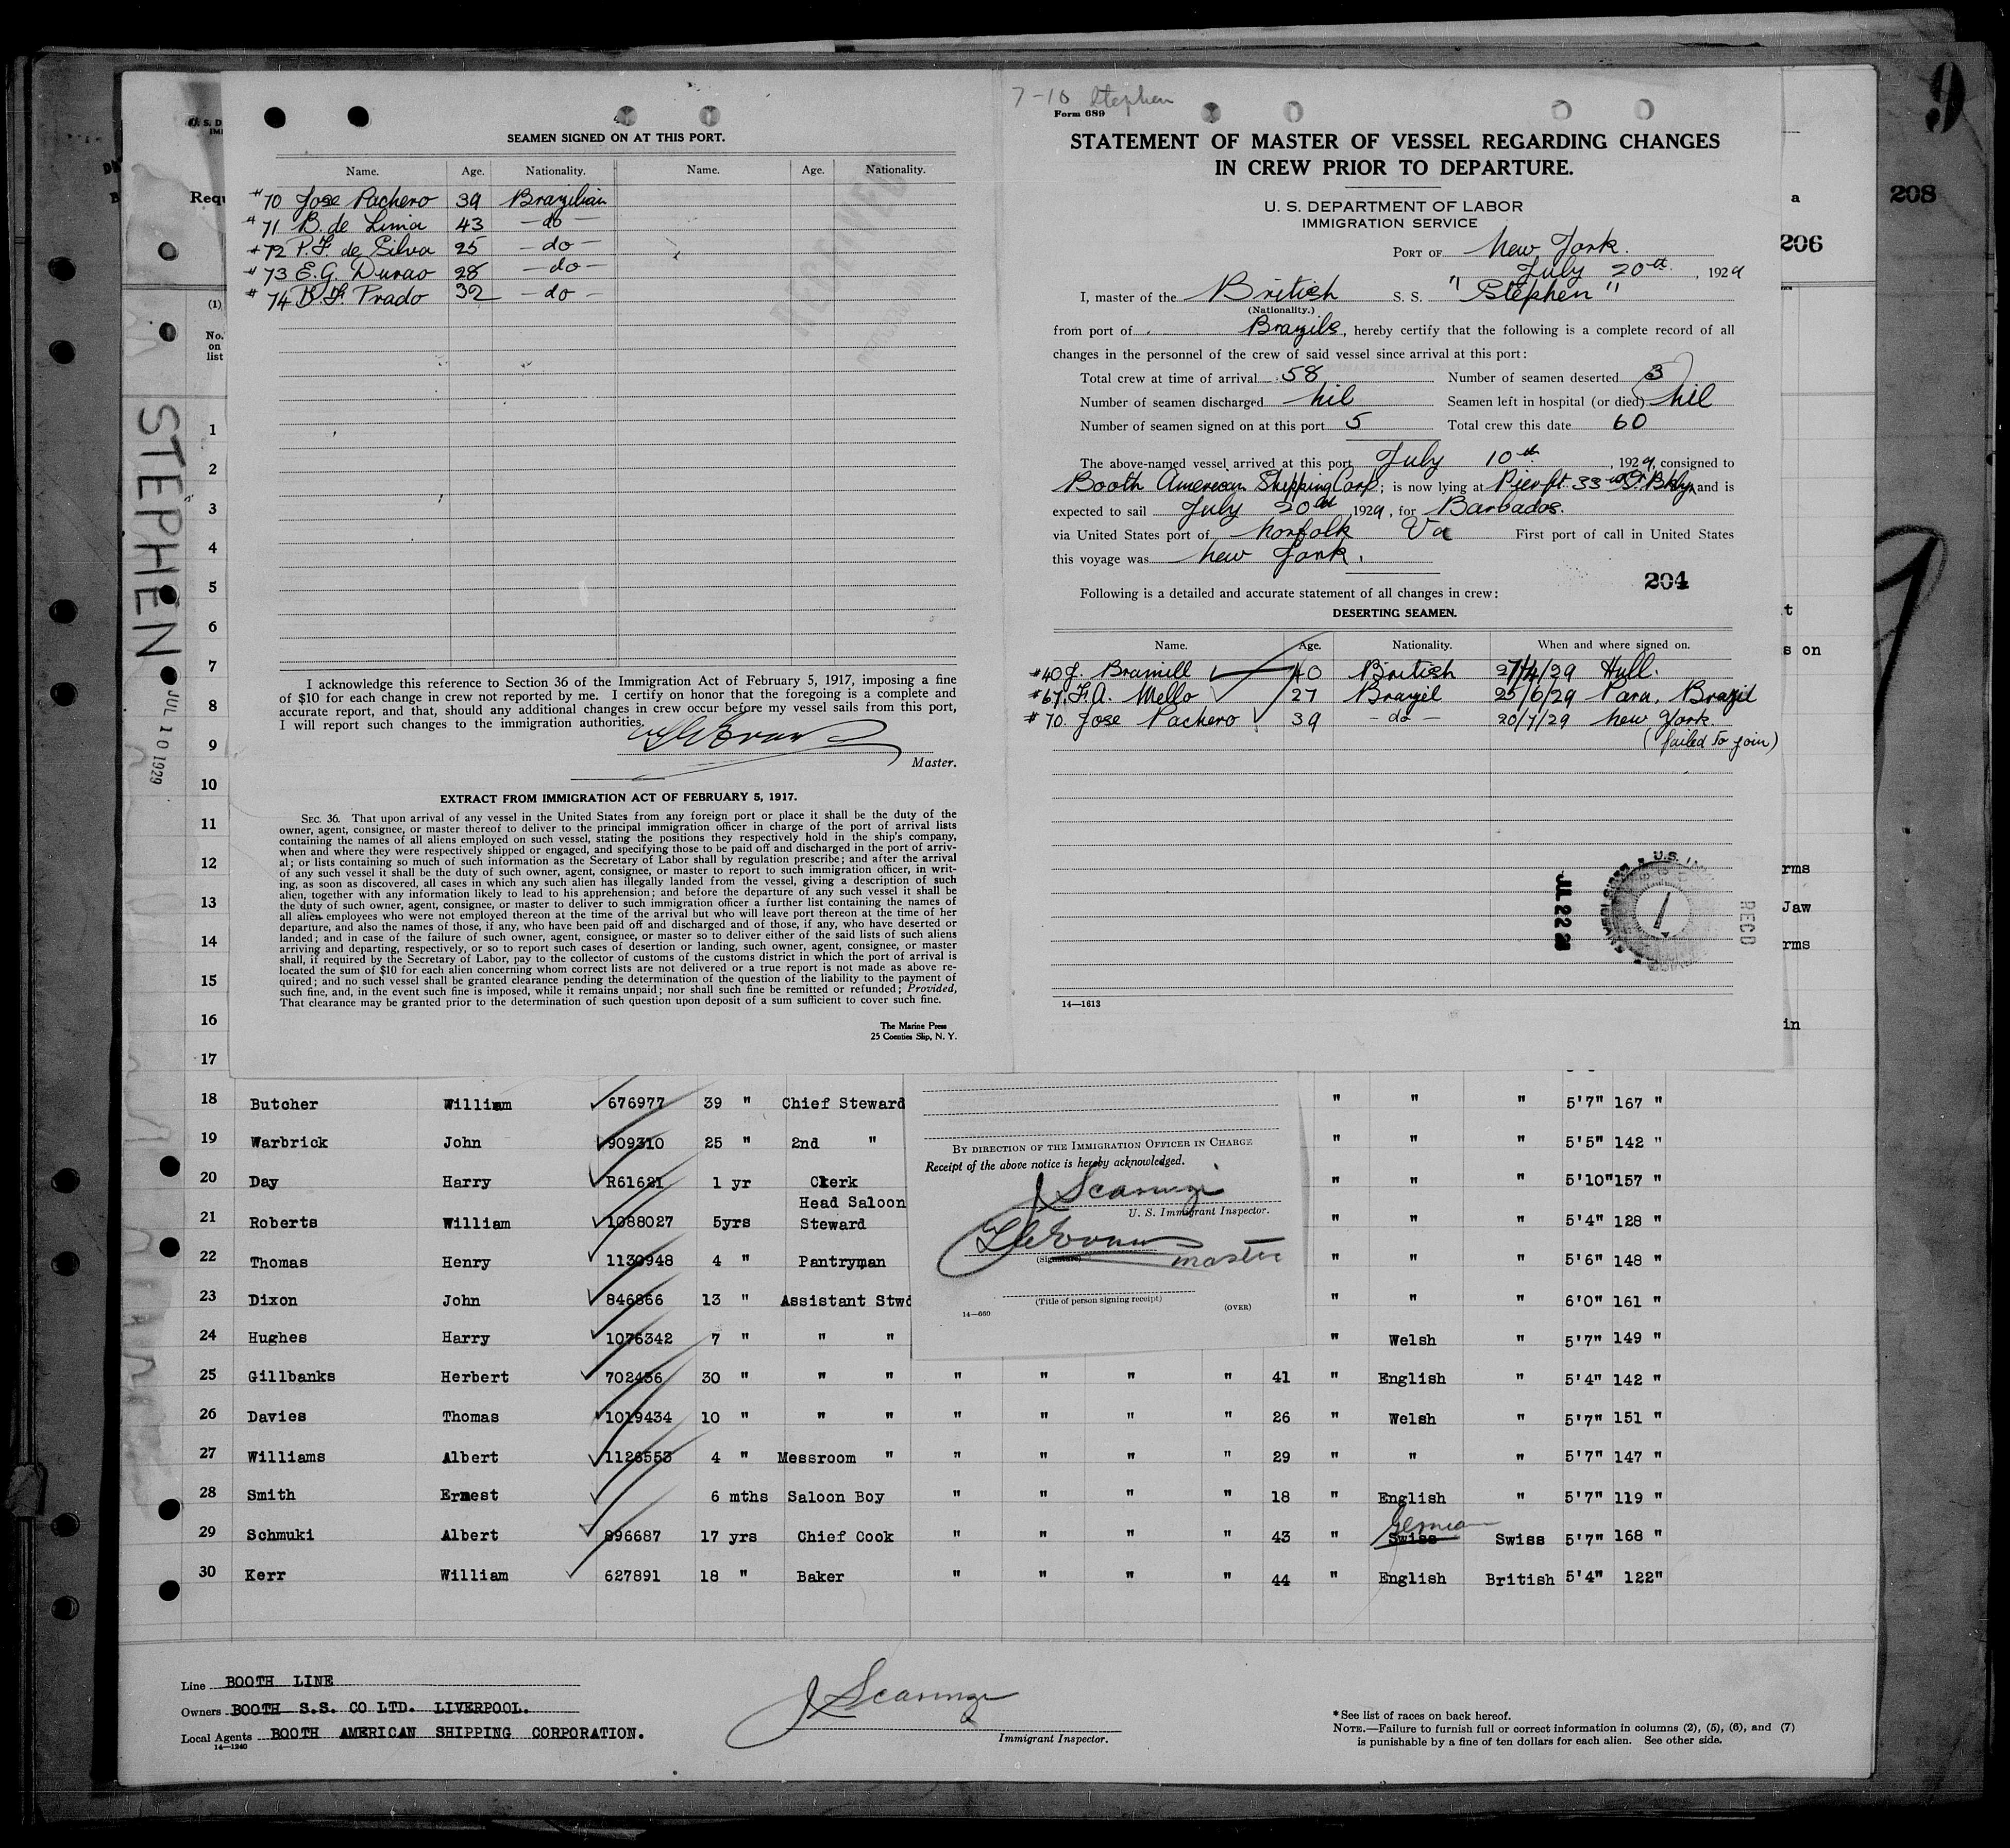 9
208
206
a
7-10 Stephen
Form 689
SEAMEN SIGNED ON AT THIS PORT.
Name. Age. Nationality. Name. Age. Nationality.
#70 Jose Pachero 39 Brazilian
#71 B. de Lima 43 - do -
#72 P.F. de Silva 25 - do -
#73 E.G. Durao 28 - do -
#74 B.F. Prado 32 - do -
I acknowledge this reference to Section 36 of the Immigration Act of February 5, 1917, imposing a fine
of $10 for each change in crew not reported by me. I certify on honor that the foregoing is a complete and
accurate report, and that, should any additional changes in crew occur before my vessel sails from this port,
I will report such changes to the immigration authorities.
Master.
EXTRACT FROM IMMIGRATION ACT OF FEBRUARY 5, 1917.
SEC. 36. That upon arrival of any vessel in the United States from any foreign port or place it shall be the duty of the
owner, agent, consignee, or master thereof to deliver to the principal immigration officer in charge of the port of arrival lists
containing the names of all aliens employed on such vessel, stating the positions they respectively hold in the ship's company,
when and where they were respectively shipped or engaged, and specifying those to be paid off and discharged in the port of arriv-
al; or lists containing so much of such information as the Secretary of Labor shall by regulation prescribe; and after the arrival
of any such vessel it shall be the duty of such owner, agent, consignee, or master to report to such immigration officer, in writ-
ing, as soon as discovered, all cases in which any such alien has illegally landed from the vessel, giving a description of such
alien, together with any information likely to lead to his apprehension; and before the departure of any such vessel it shall be
the duty of such owner, agent, consignee, or master to deliver to such immigration officer a further list containing the names of
all alien employees who were not employed thereon at the time of the arrival but who will leave port thereon at the time of her
departure, and also the names of those, if any, who have been paid off and discharged and of those, if any, who have deserted or
landed; and in case of the failure of such owner, agent, consignee, or master so to deliver either of the said lists of such aliens
arriving and departing, respectively, or so to report such cases of desertion or landing, such owner, agent, consignee, or master
shall, if required by the Secretary of Labor, pay to the collector of customs of the customs district in which the port of arrival is
located the sum of $10 for each alien concerning whom correct lists are not delivered or a true report is not made as above re-
quired; and no such vessel shall be granted clearance pending the determination of the question of the liability to the payment of
such fine, and, in the event such fine is imposed, while it remains unpaid; nor shall such fine be remitted or refunded; Provided,
That clearance may be granted prior to the determination of such question upon deposit of a sum sufficient to cover such fine.
The Marine Press
25 Coenties Slip, N. Y.
STATEMENT OF MASTER OF VESSEL REGARDING CHANGES
IN CREW PRIOR TO DEPARTURE.
U. S. DEPARTMENT OF LABOR
IMMIGRATION SERVICE
PORT OF New York.
July 20th, 1929
I, master of the British S. S. "Stephen"
(Nationality.)
from port of Brazils, hereby certify that the following is a complete record of all
changes in the personnel of the crew of said vessel since arrival at this port:
Total crew at time of arrival 58 Number of seamen deserted 3
Number of seamen discharged nil Seamen left in hospital (or died) nil
Number of seamen signed on at this port 5 Total crew this date 60
The above-named vessel arrived at this port July 10th, 1929, consigned to
Booth American Shipping Corp; is now lying at Pier ft 33rd St. Bklyn and is
expected to sail July 20th 1929, for Barbados.
via United States port of Norfolk Va First port of call in United States
this voyage was New York.
204
Following is a detailed and accurate statement of all changes in crew:
DESERTING SEAMEN.
Name. Age. Nationality. When and where signed on.
#40 J. Bramill 40 British 27/4/29 Hull.
#67. F.A. Mello 27 Brazil 25/6/29 Para, Brazil
#70. Jose Pachero 39 - do - 20/7/29 New York.
(failed to join)
JUL 22 29
RECD
14—1613
STEPHEN
JUL 10 1929
Requ
(1)
No.
on
list
1
2
3
4
5
6
7
8
9
10
11
12
13
14
15
16
17
t
s on
rms
Jaw
rms
in
18 Butcher William 676977 39 " Chief Steward " " " 5'7" 167 "
19 Warbrick John 909310 25 " 2nd " " " " 5'5" 142 "
20 Day Harry R61621 1 yr Clerk " " " 5'10" 157 "
21 Roberts William 1088027 5yrs Head Saloon Steward " " " 5'4" 128 "
22 Thomas Henry 1130948 4 " Pantryman " " " 5'6" 148 "
23 Dixon John 846866 13 " Assistant Stwd " " " 6'0" 161 "
24 Hughes Harry 1076342 7 " " " " Welsh " 5'7" 149 "
25 Gillbanks Herbert 702456 30 " " " " " " " 41 " English " 5'4" 142 "
26 Davies Thomas 1019434 10 " " " " " " " 26 " Welsh " 5'7" 151 "
27 Williams Albert 1126553 4 " Messroom " " " " " 29 " " " 5'7" 147 "
28 Smith Ernest 6 mths Saloon Boy " " " " 18 " English " 5'7" 119 "
29 Schmuki Albert 896687 17 yrs Chief Cook " " " " 43 " Swiss German Swiss 5'7" 168 "
30 Kerr William 627891 18 " Baker " " " " 44 " English British 5'4" 122"
BY DIRECTION OF THE IMMIGRATION OFFICER IN CHARGE
Receipt of the above notice is hereby acknowledged.
J Scaringi
U. S. Immigrant Inspector.
(Signature) master
(Title of person signing receipt)
14—660 (OVER)
Line BOOTH LINE
Owners BOOTH S.S. CO LTD. LIVERPOOL.
Local Agents BOOTH AMERICAN SHIPPING CORPORATION.
14—1240
J Scaringi
Immigrant Inspector.
*See list of races on back hereof.
NOTE.—Failure to furnish full or correct information in columns (2), (5), (6), and (7)
is punishable by a fine of ten dollars for each alien. See other side.